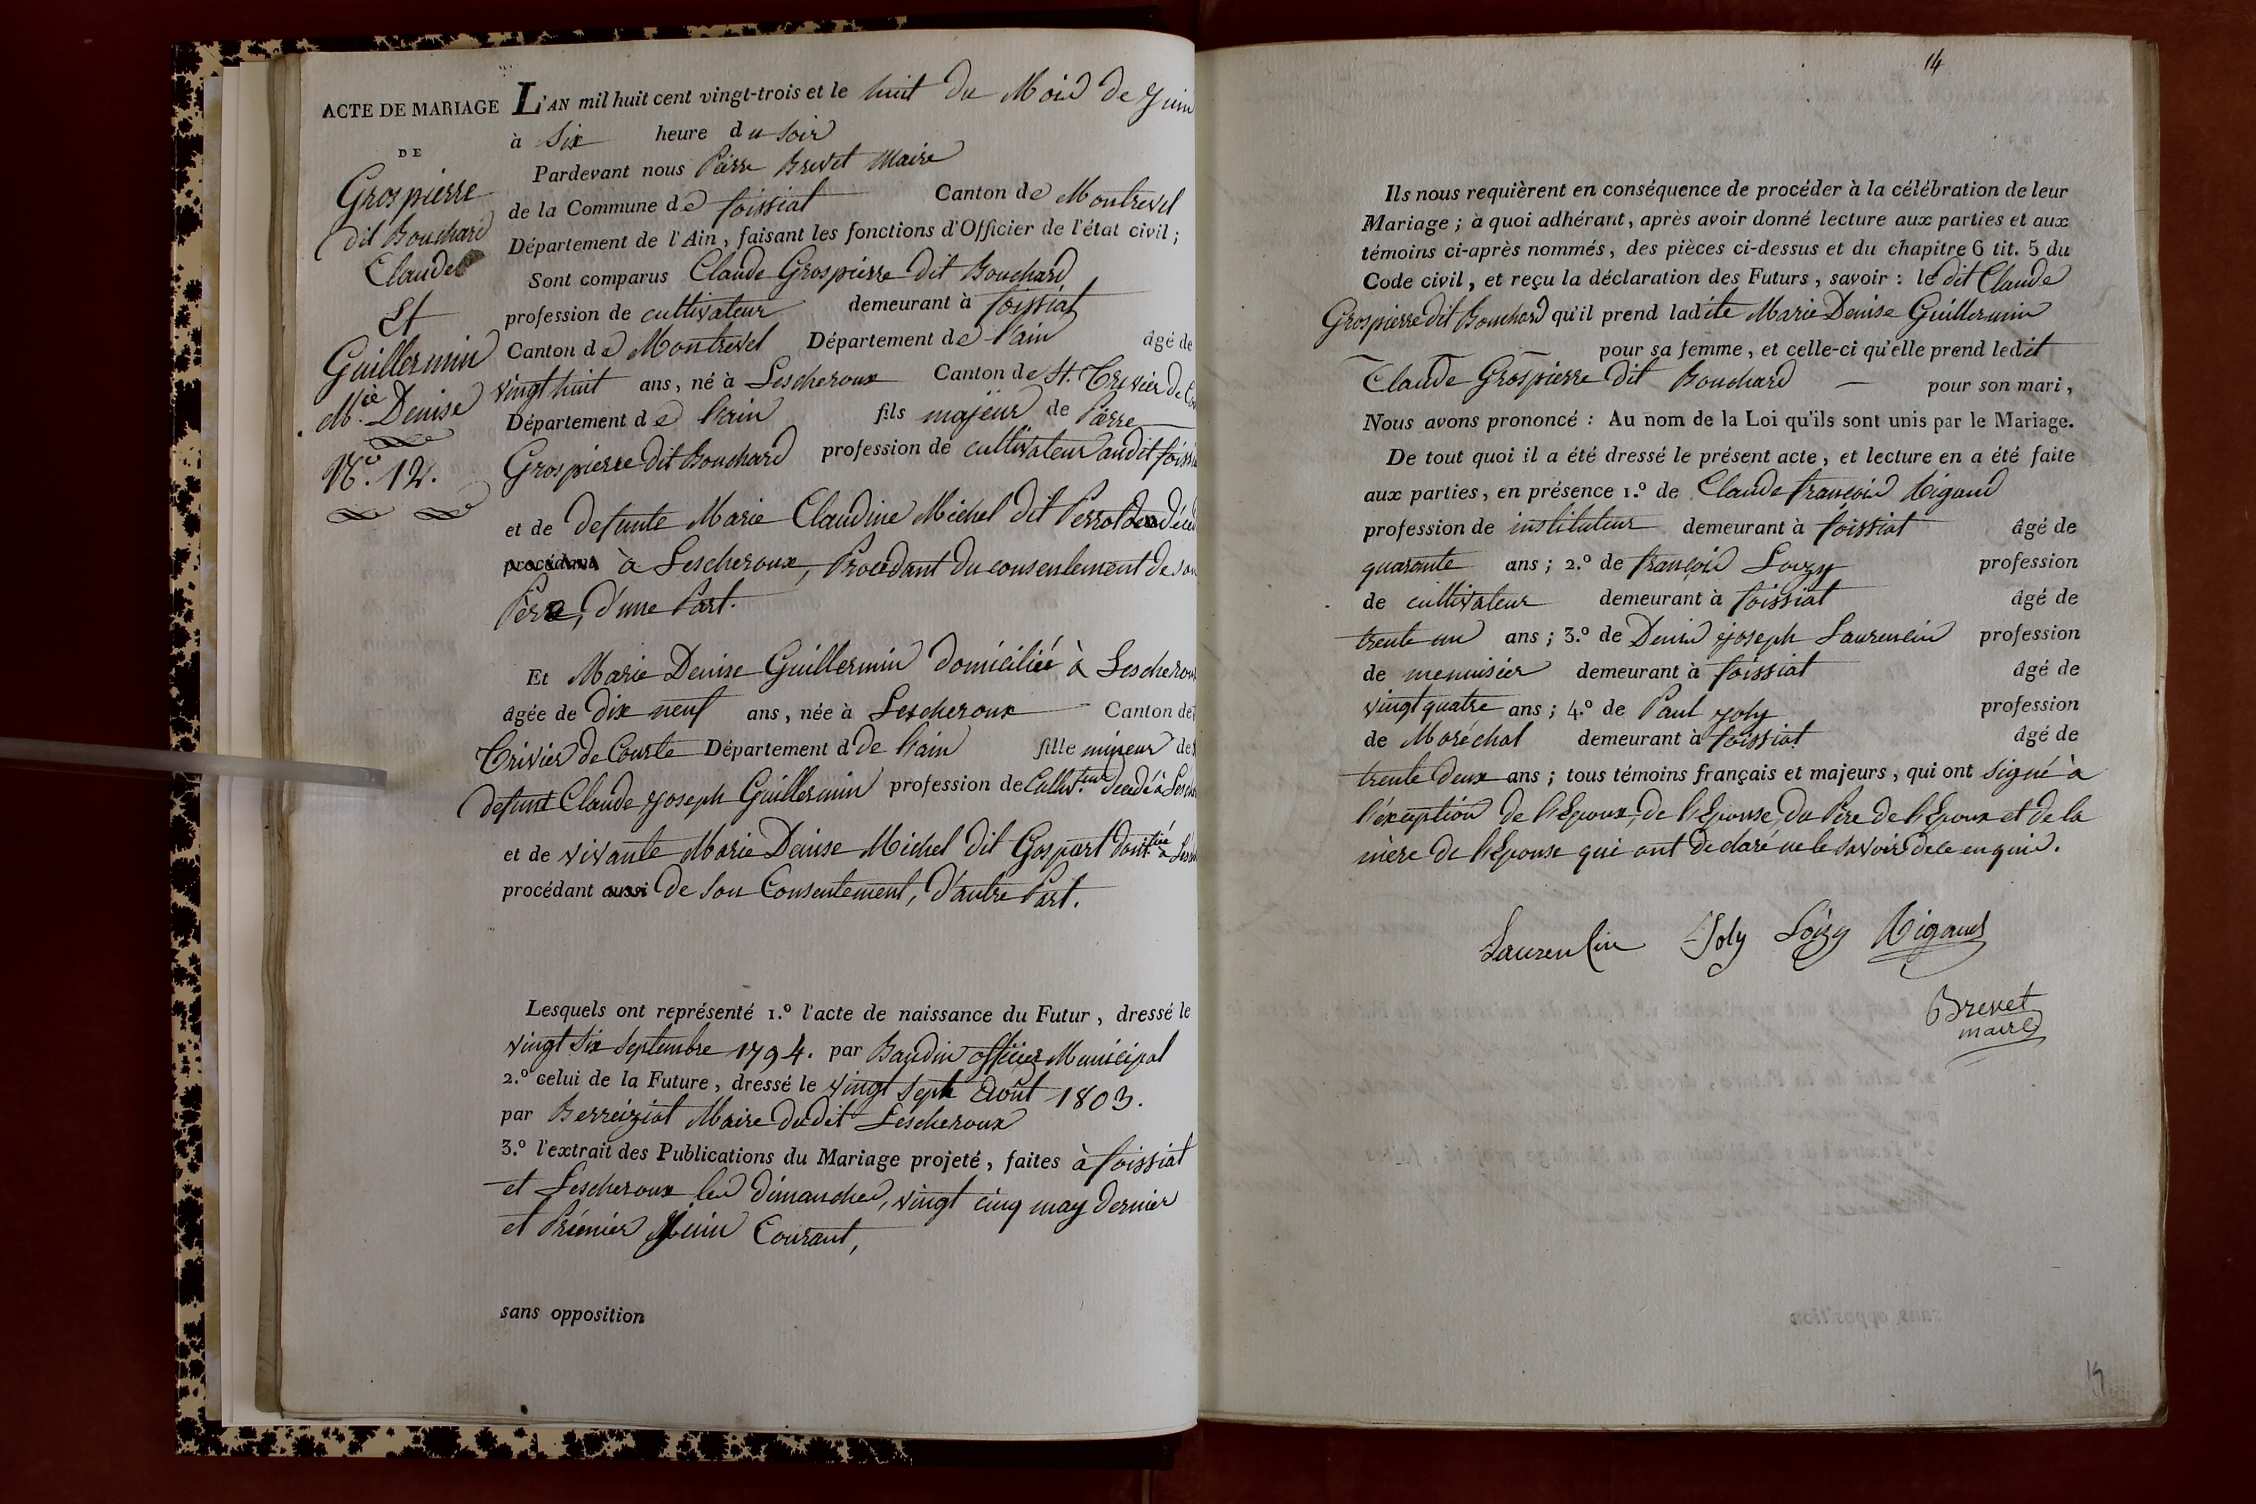 ACTE DE MARIAGE
DE
Grospierre
dit Bouchard
Claude
Et
Guillermin
M.ie Denise
N.o 12.
L'AN mil huit cent vingt-trois et le huit du Mois de Juin
à Six heure du Soir
Pardevant nous Pierre Brevet Maire
de la Commune de foissiat Canton de Montrevel
Département de l'Ain, faisant les fonctions d'Officier de l'état civil;
Sont comparus Claude Grospierre dit Bouchard
profession de cultivateur demeurant à foissiat
Canton de Montrevel Département de l'ain âgé de
vingt huit ans, né à Lescheroux Canton de St. Trivier de
Département de l'ain fils majeur de Pierre
Grospierre dit Bouchard profession de cultivateur audit
et de defunte Marie Claudine Michel dit
procédant à Lescheroux, Procedant du consentement de
Père, d'une Part.
Et Marie Denise Guillermin domiciliée à
âgée de dix neuf ans, née à Lescheroux Canton de
Trivier de Courte Département d de l'ain fille mineur de
defunt Claude Joseph Guillermin profession de Cultiv.teur décédé à
et de vivante Marie Denise Michel dit Gaspart
procédant aussi de son Consentement, d'autre Part.
Lesquels ont représenté 1.º l'acte de naissance du Futur, dressé le
vingt Six Septembre 1794. par Baudin officier Municipal
2.º celui de la Future, dressé le vingt Sept Août 1803.
par Berreiziat Maire dudit Lescheroux
3.º l'extrait des Publications du Mariage projeté, faites à foissiat
et Lescheroux les dimanches, vingt cinq may dernier
et Prémier Juin Courant,
sans opposition
14
Ils nous requièrent en conséquence de procéder à la célébration de leur
Mariage; à quoi adhérant, après avoir donné lecture aux parties et aux
témoins ci-après nommés, des pièces ci-dessus et du chapitre 6 tit. 5 du
Code civil, et reçu la déclaration des Futurs, savoir: le dit Claude
Grospierre dit Bouchard qu'il prend ladite Marie Denise Guillermin
pour sa femme, et celle-ci qu'elle prend ledit
Claude Grospierre dit Bouchard — pour son mari,
Nous avons prononcé: Au nom de la Loi qu'ils sont unis par le Mariage.
De tout quoi il a été dressé le présent acte, et lecture en a été faite
aux parties, en présence 1.º de Claude françois Rigaud
profession de instituteur demeurant à foissiat âgé de
quarante ans; 2.º de françois Loizy profession
de cultivateur demeurant à foissiat âgé de
trente un ans; 3.º de Denis Joseph Laurencin profession
de menuisier demeurant à foissiat âgé de
vingt quatre ans; 4.º de Paul Joly profession
de Maréchal demeurant à foissiat âgé de
trente deux ans; tous témoins français et majeurs, qui ont signé à
l'éxception de l'Epoux, de l'Epouse, du Père de l'Epoux et de la
mère de l'Epouse qui ont declaré ne le savoir de ce enquis.
Laurencin Joly Loizy Rigaud
Brevet
maire